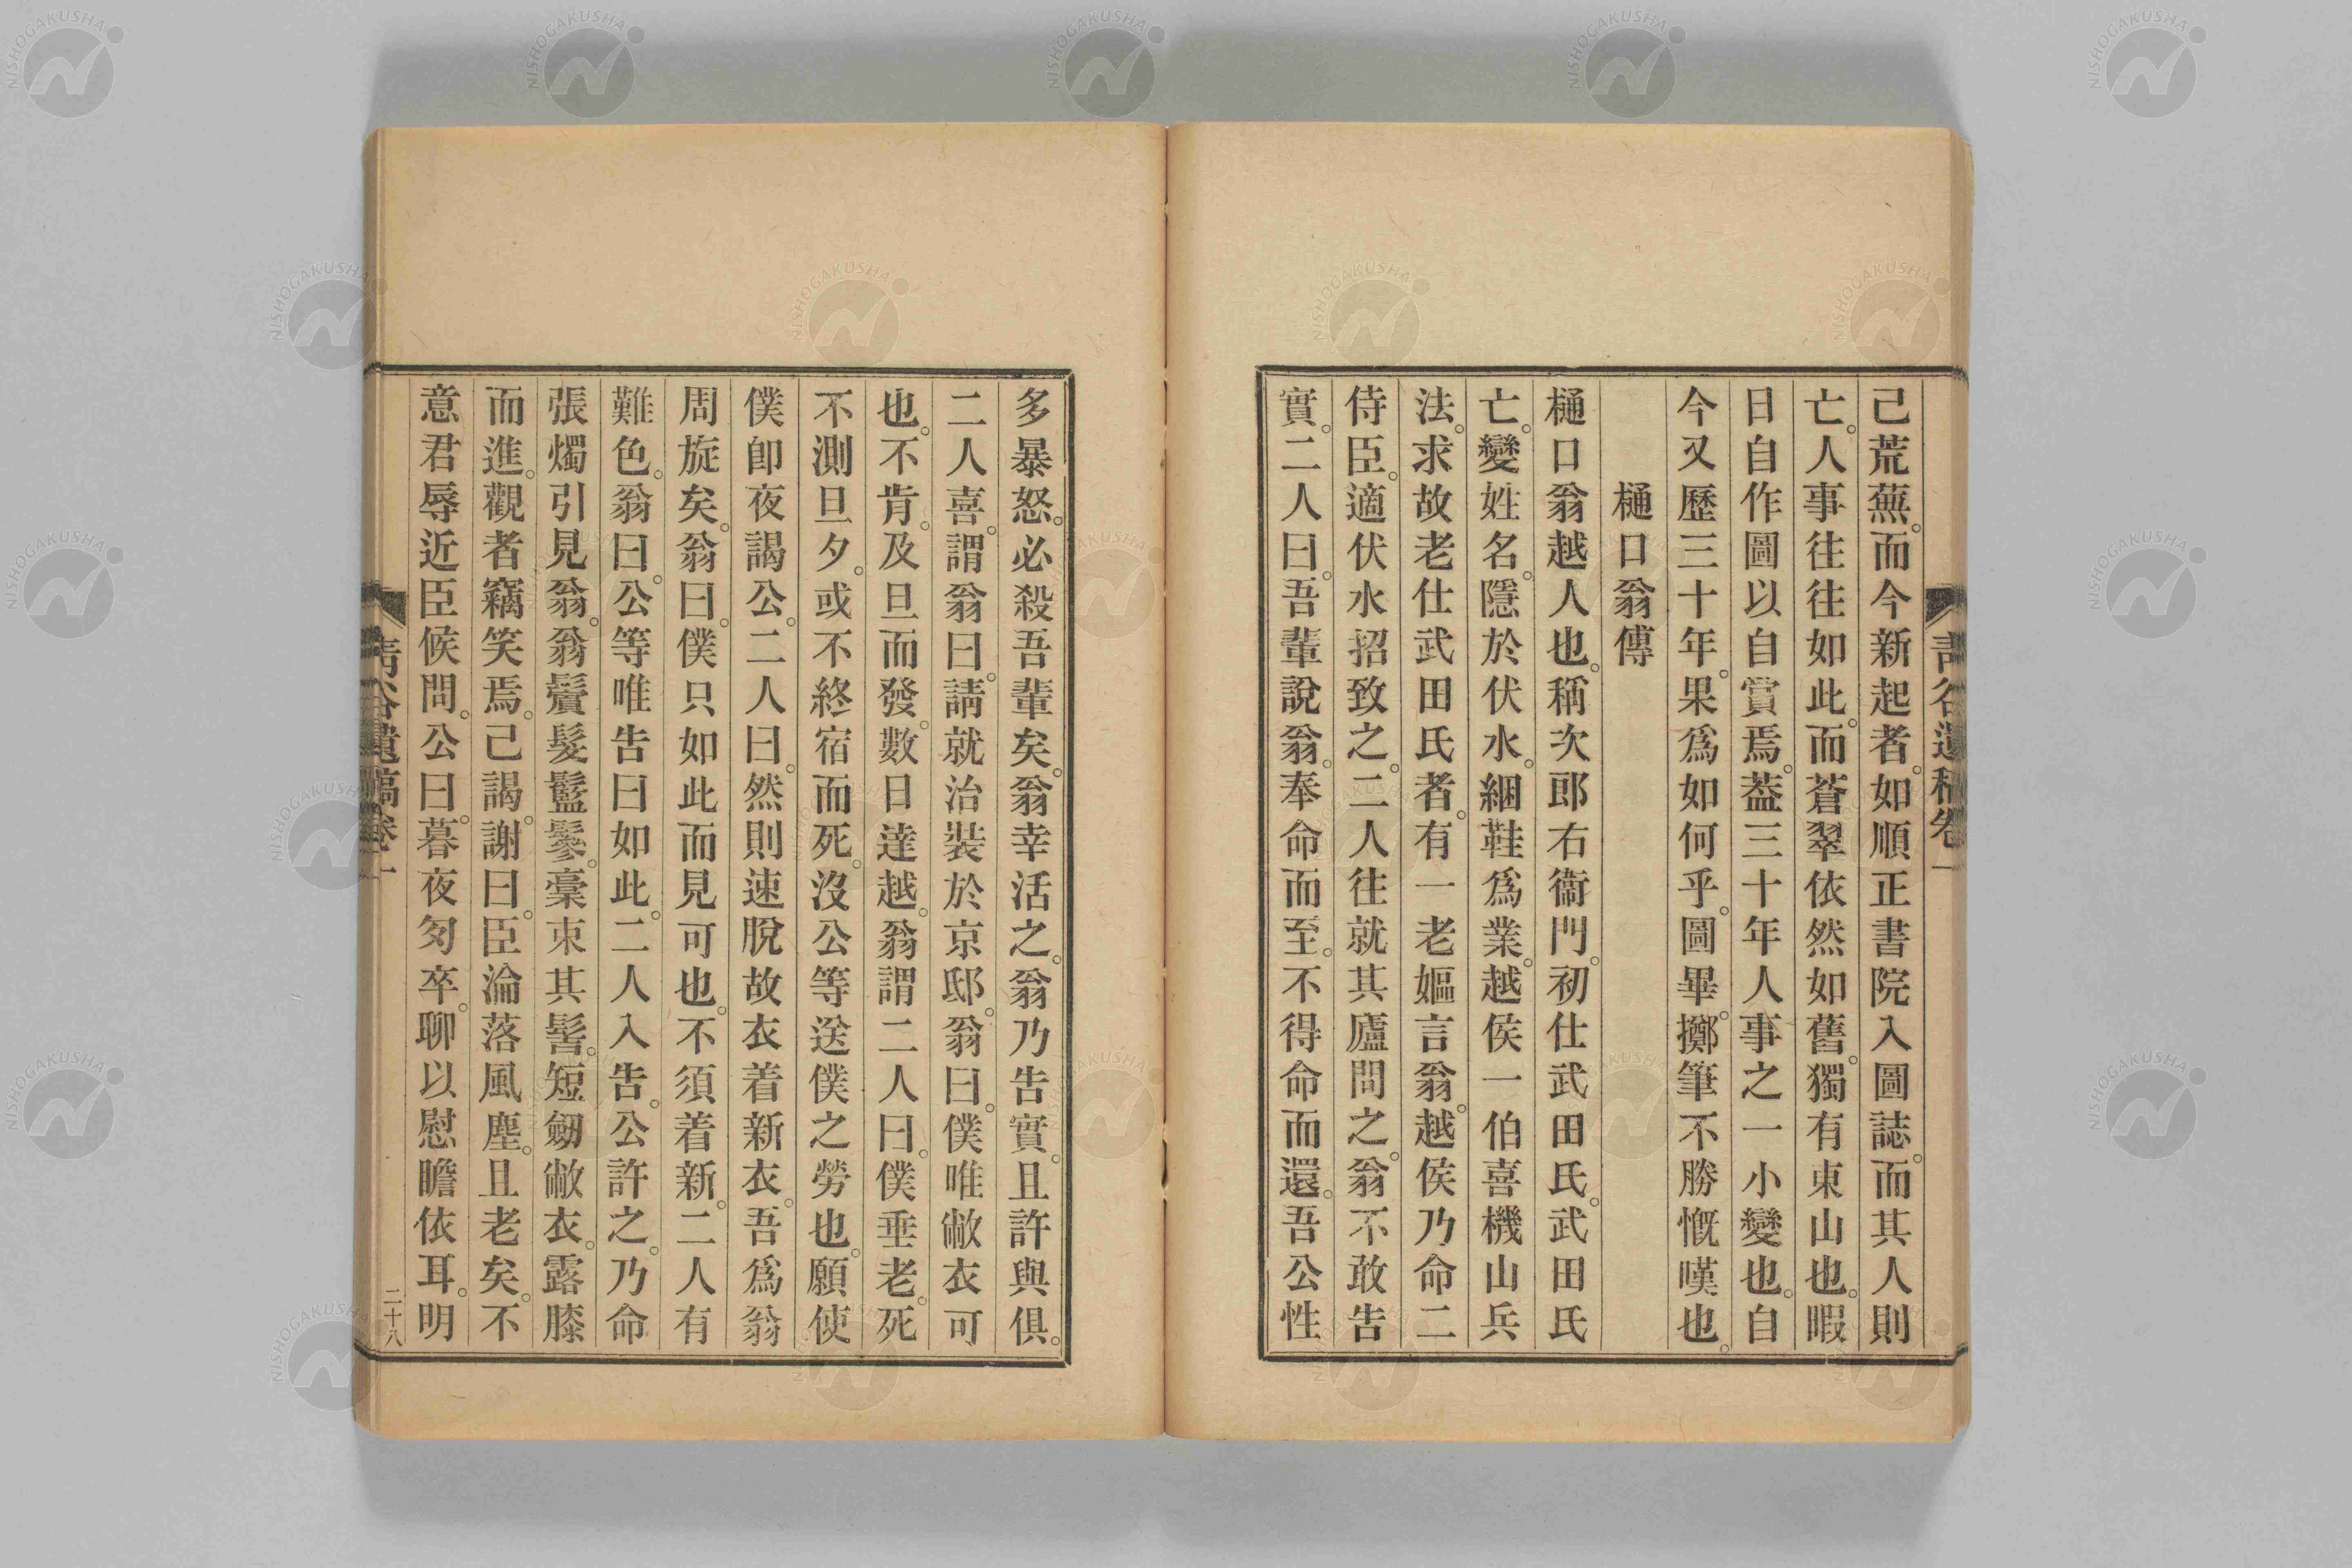 己荒蕪。而今新起者。如順正書院入圖誌。而其人則
亡。人事往往如此。而蒼翠依然如舊。獨有東山也。暇
日自作圖以自賞焉。蓋三十年人事之一小變也。自
今又歷三十年。果爲如何乎。圖畢。擲筆不勝慨嘆也。
樋口翁傳
樋口翁越人也。稱次郎右衞門。初仕武田氏。武田氏
亡。變姓名。隱於伏水。綑鞋爲業。越侯一伯喜機山兵
法。求故老仕武田氏者。有一老嫗言翁。越侯乃命二
侍臣。適伏水招致之。二人往就其廬問之。翁不敢告
實。二人曰。吾輩說翁。奉命而至。不得命而還。吾公性
多暴怒。必殺吾輩矣。翁幸活之。翁乃告實。且許與俱。
二人喜。謂翁曰。請就治裝於京邸。翁曰。僕唯敝衣可
也。不肯。及旦而發。數日達越。翁謂二人曰。僕垂老。死
不測旦夕。或不終宿而死。沒公等送僕之勞也。願使
僕卽夜謁公。二人曰。然則速脫故衣着新衣。吾爲翁
周旋矣。翁曰。僕只如此而見可也。不須着新。二人有
難色。翁曰。公等唯告曰如此。二人入告。公許之。乃命
張燭引見翁。翁鬢髮鬅鬖。藁束其髻。短劒敝衣。露膝
而進。觀者竊笑焉。己謁。謝曰。臣淪落風塵。且老矣。不
意君辱近臣候問。公曰。暮夜匆卒。聊以慰瞻依耳。明
靑谷遺稿卷一
二十八
靑谷遺稿卷一
NISHOGAKUSHA